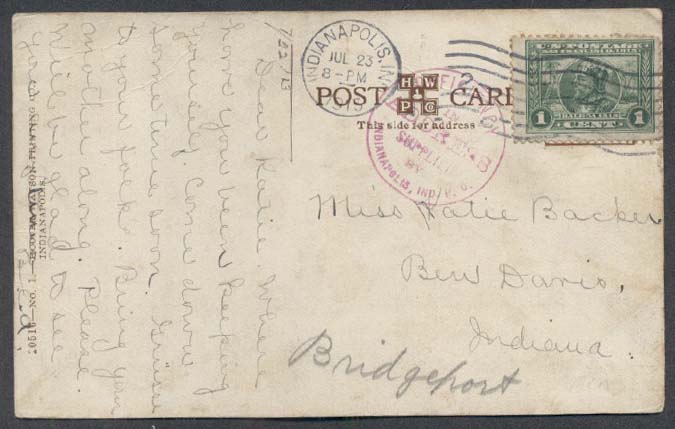 7/23-13
Dear Katie. Where
have you been keeping
yourself. Come down
sometime soon.
to your folk. Bring your
mother along. Please.
Will be glad to see
you
10516—No. 1.—
INDIANAPOLIS.
INDIANAPOLIS, IN
JUL 23
8-PM
POST CARD
H W
P C
This side for address
U.S. POSTAGE
1 CENT. 1
BALBOA 1513
SUPPLIED
BY
INDIANAPOLIS, IND. P. O.
Miss Katie Backer
Ben Davis,
Indiana.
Bridgeport